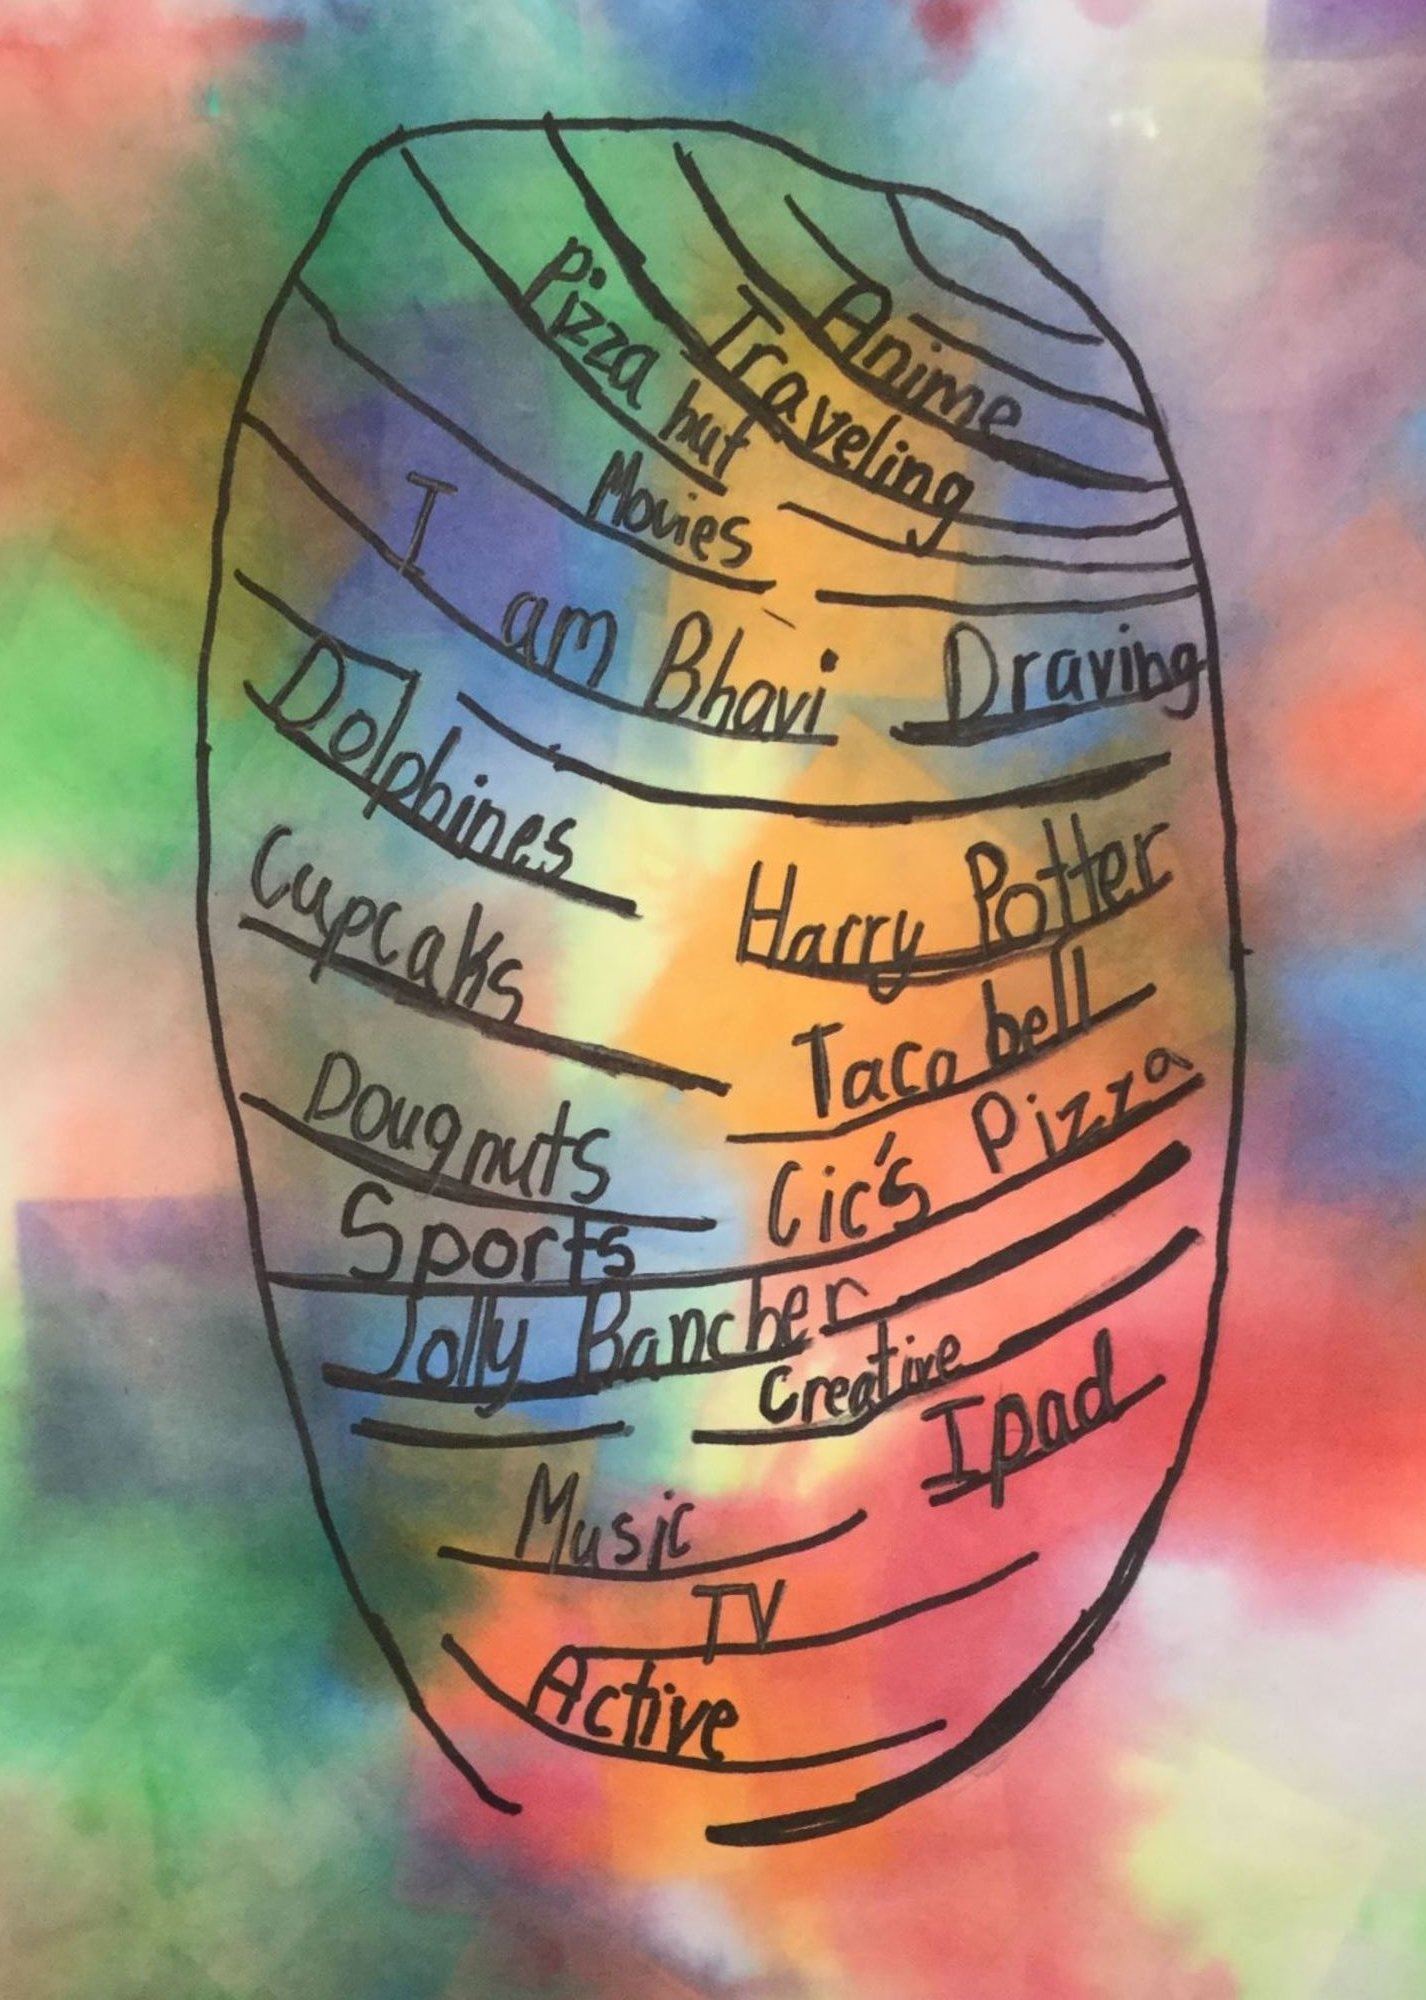 Anime
Traveling
Pizza hut
Movies
I am Bhavi
Draving
Dolphines
Harry Potter
Cupcaks
Taco bell
Dougnuts
Cic's Pizza
Sports
Jolly Rancher
Creative
Ipad
Music
TV
Active